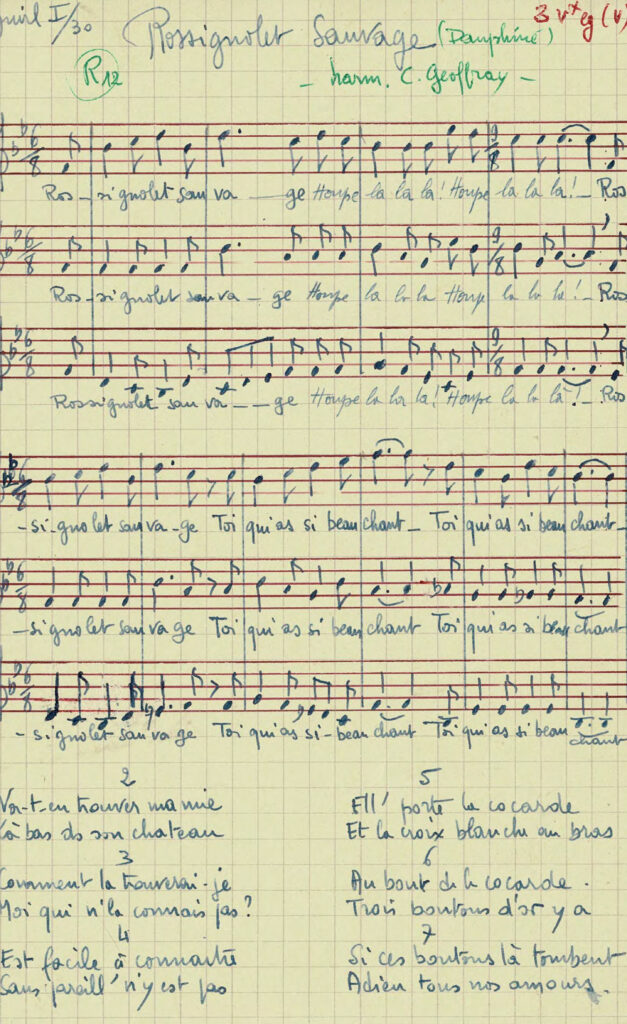 I/30
Rossignolet Sauvage (Dauphiné)
3 v
R12
- harm. C. Geoffray -
Ros-signolet sauva - ge Houpe la la la! Houpe la la la! - Ros
Ros-signolet sauva - ge Houp la la la Houp la la la! - Ros
Rossignolet sauva - - ge Houpe la la la! Houpe la la la! - Ros
-si-gnolet sauva-ge Toi qui as si beau chant - Toi qui as si beau chant-
-si gnolet sauvage Toi qui as si beau chant Toi qui as si beau chant
- signolet sauvage Toi qui as si-beau chant Toi qui as si beau chant
2
Va-t-en trouver ma mie
Là bas ds son chateau
3
Comment la trouverai-je
Moi qui n'la connais pas?
4
Est facile à connaitre
Sans pareill' n'y est pas
5
Ell' porte la cocarde
Et la croix blanche au bras
6
Au bout de la cocarde.
Trois boutons d'or y a
7
Si ces boutons là tombent
Adieu tous nos amours.